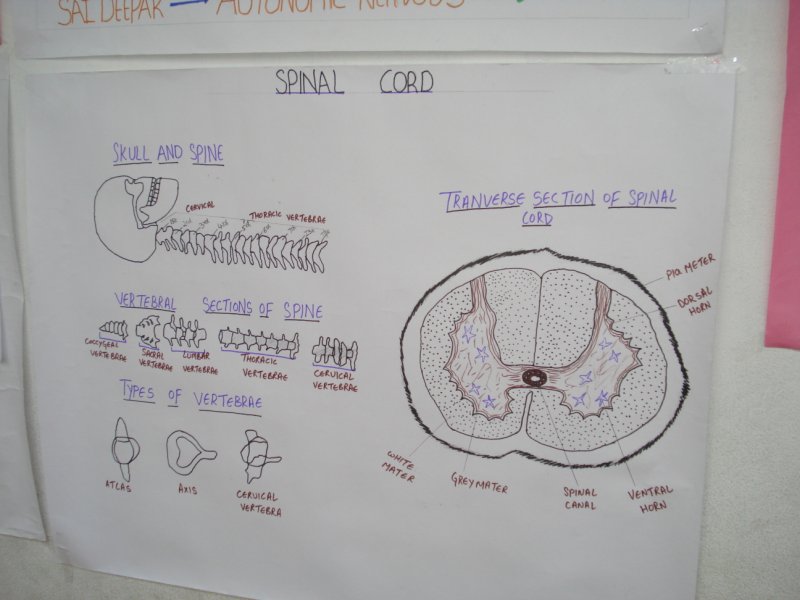 SAI DEEPAK → AUTONOMIC NERVOUS
SPINAL CORD
SKULL AND SPINE
CERVICAL
THORACIC VERTEBRAE
VERTEBRAL SECTIONS OF SPINE
COCCYGEAL
VERTEBRAE
SACRAL
VERTEBRAE
LUMBAR
VERTEBRAE
THORACIC
VERTEBRAE
CERVICAL
VERTEBRAE
TYPES OF VERTEBRAE
ATLAS
AXIS
CERVICAL
VERTEBRA
TRANVERSE SECTION OF SPINAL
CORD
PIA METER
DORSAL
HORN
WHITE
MATER
GREY MATER
SPINAL
CANAL
VENTRAL
HORN